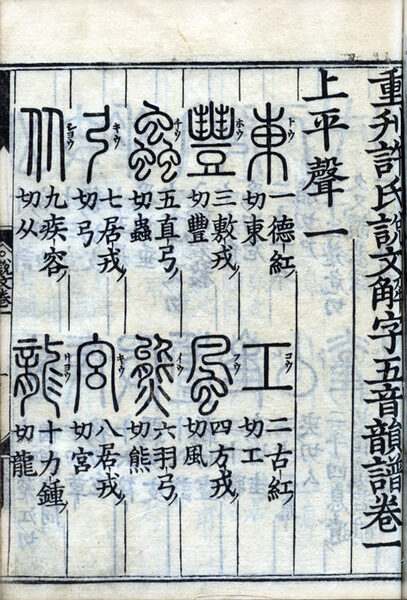 重刋許氏說文解字五音韻譜卷一
上平聲一
東
トウ
一德紅
切東
工
コウ
二古紅
切工
豐
ホウ
三敷戎
切豐
風
フウ
四方戎
切風
蟲
チウ
五直弓
切蟲
熊
イウ
六羽弓
切熊
弓
キウ
七居戎
切弓
宮
キウ
八居戎
切宮
从
九疾容
切从
龍
リヨウ
十力鍾
切龍
說文卷一
一